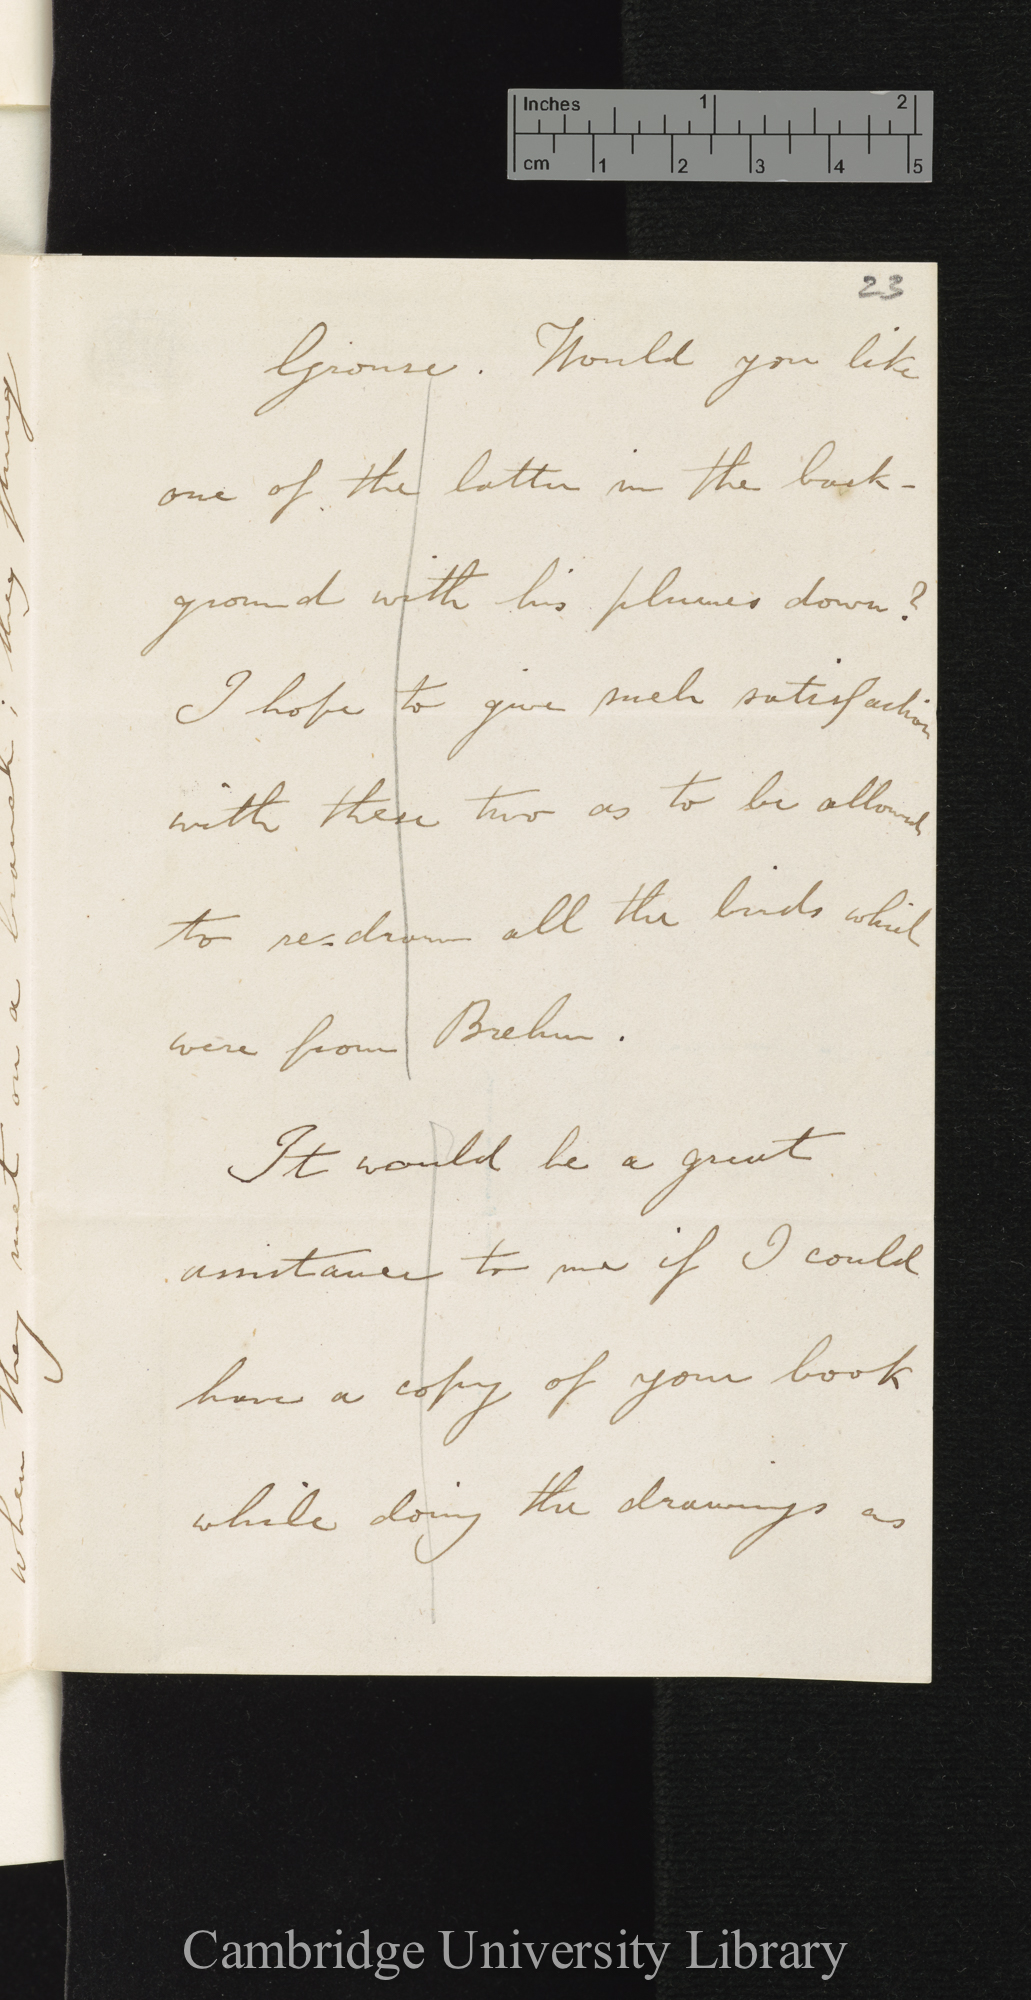 Inches 1 2
cm 1 2 3 4 5
23
Grouse. Would you like
one of the latter in the back-
ground with his plumes down?
I hope to give such satisfaction
with these two as to be allowed
to re-draw all the birds which
were from Brehm.
It would be a great
assistance to me if I could
have a copy of your book
while doing the drawings as
when they met on a branch; they
Cambridge University Library